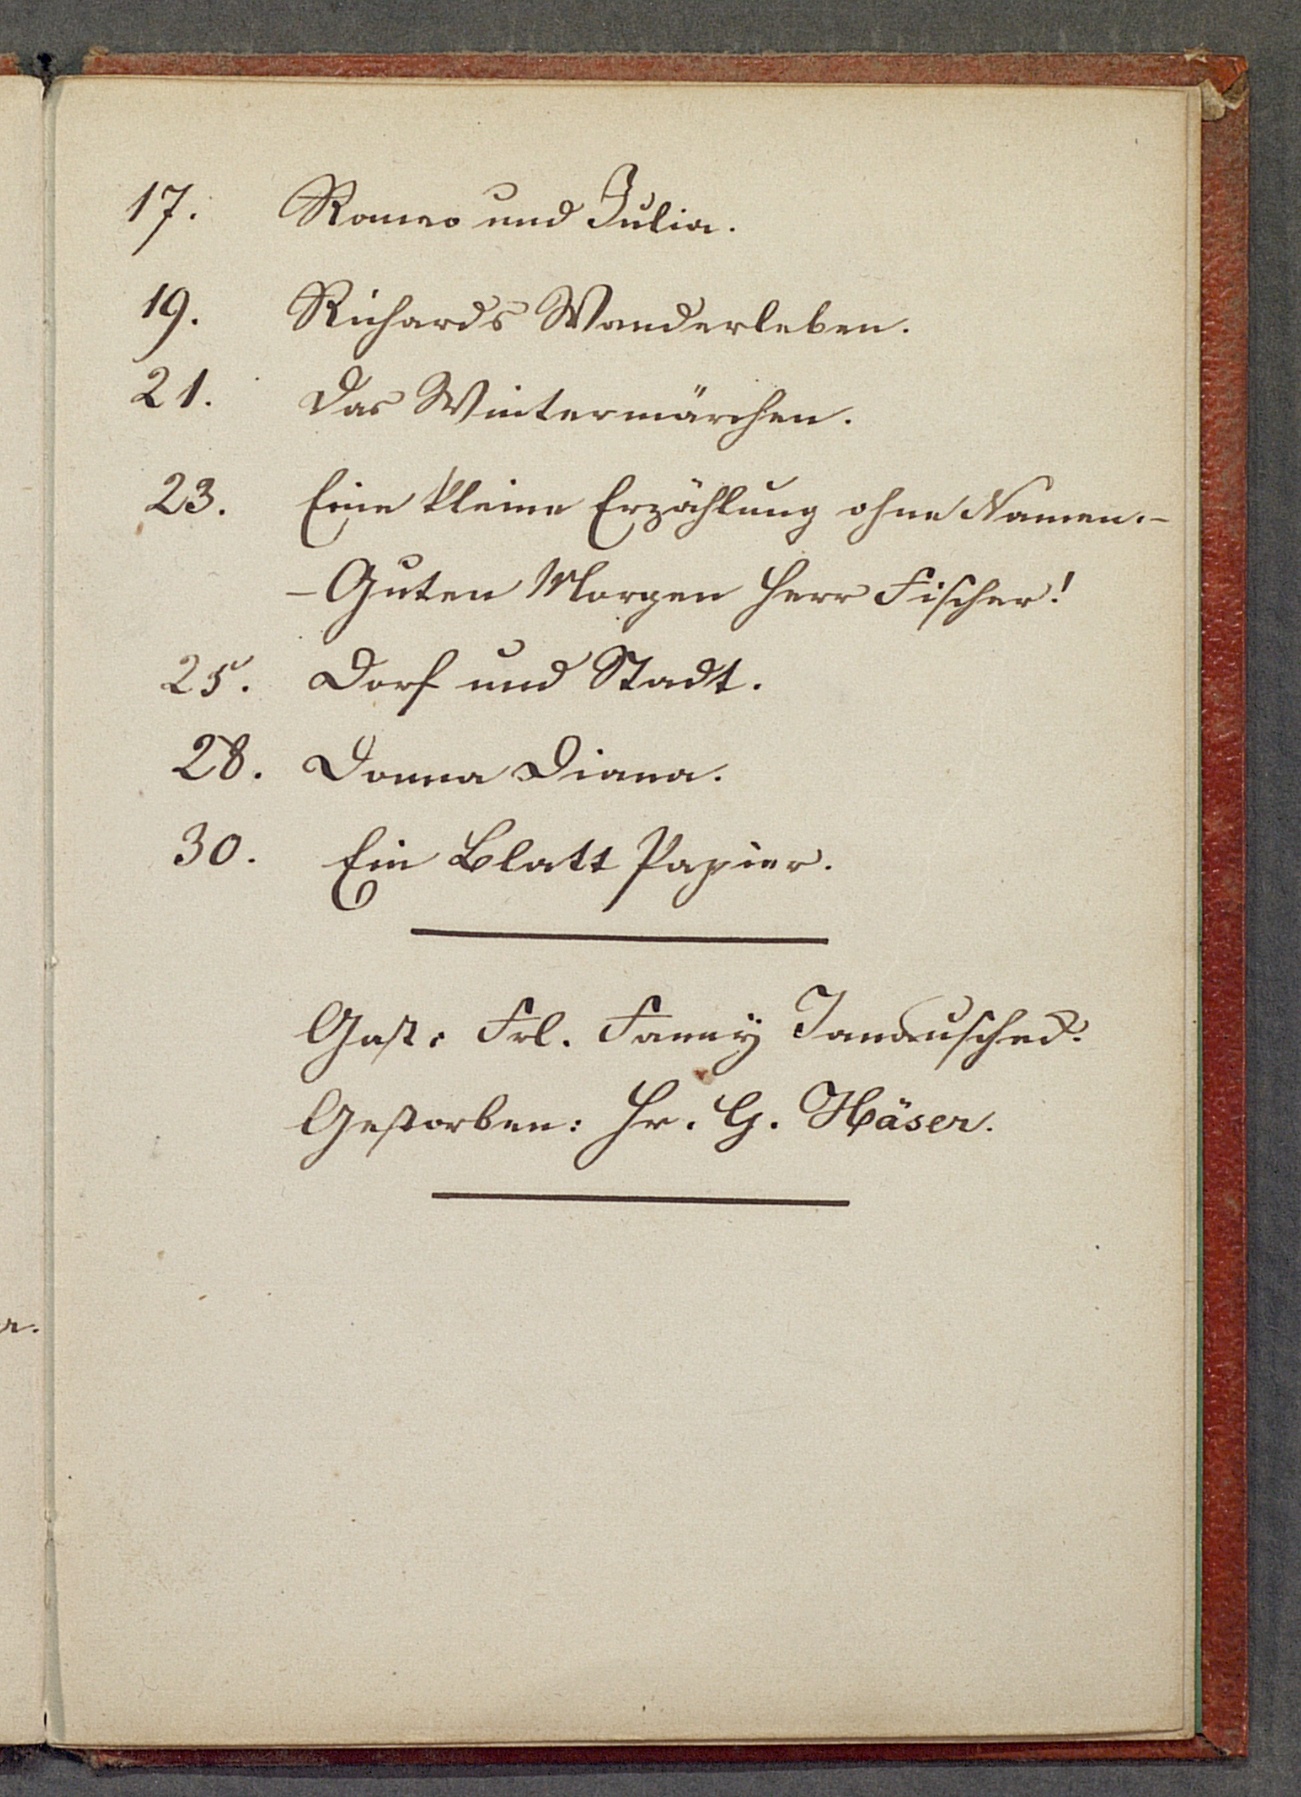 17. Romeo und Julia.
19. Richards Wanderleben.
21. Das Wintermärchen.
23. Eine kleine Erzählung ohne Namen. -
- Guten Morgen Herr Fischer!
25. Dorf und Stadt.
28. Donna Diana.
30. Ein Blatt Papier.
Gast: Frl. Fanny Janauscheck.
Gestorben: Hr. G. Häser.
r.